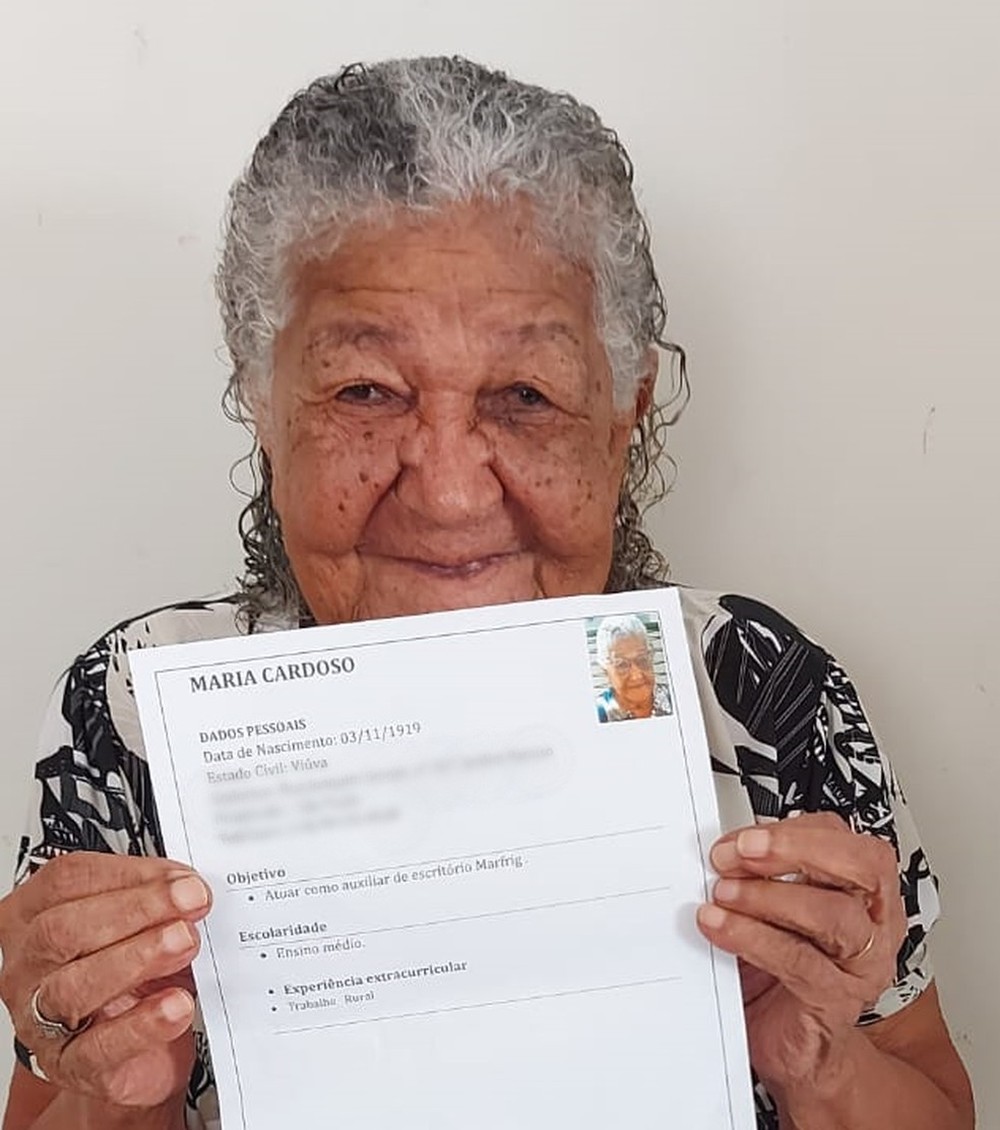 MARIA CARDOSO
DADOS PESSOAIS
Data de Nascimento: 03/11/1919
Estado Civil: Viúva
Objetivo
• Atuar como auxiliar de escritório Marfrig.
Escolaridade
• Ensino médio.
• Experiência extracurricular
• Trabalho Rural